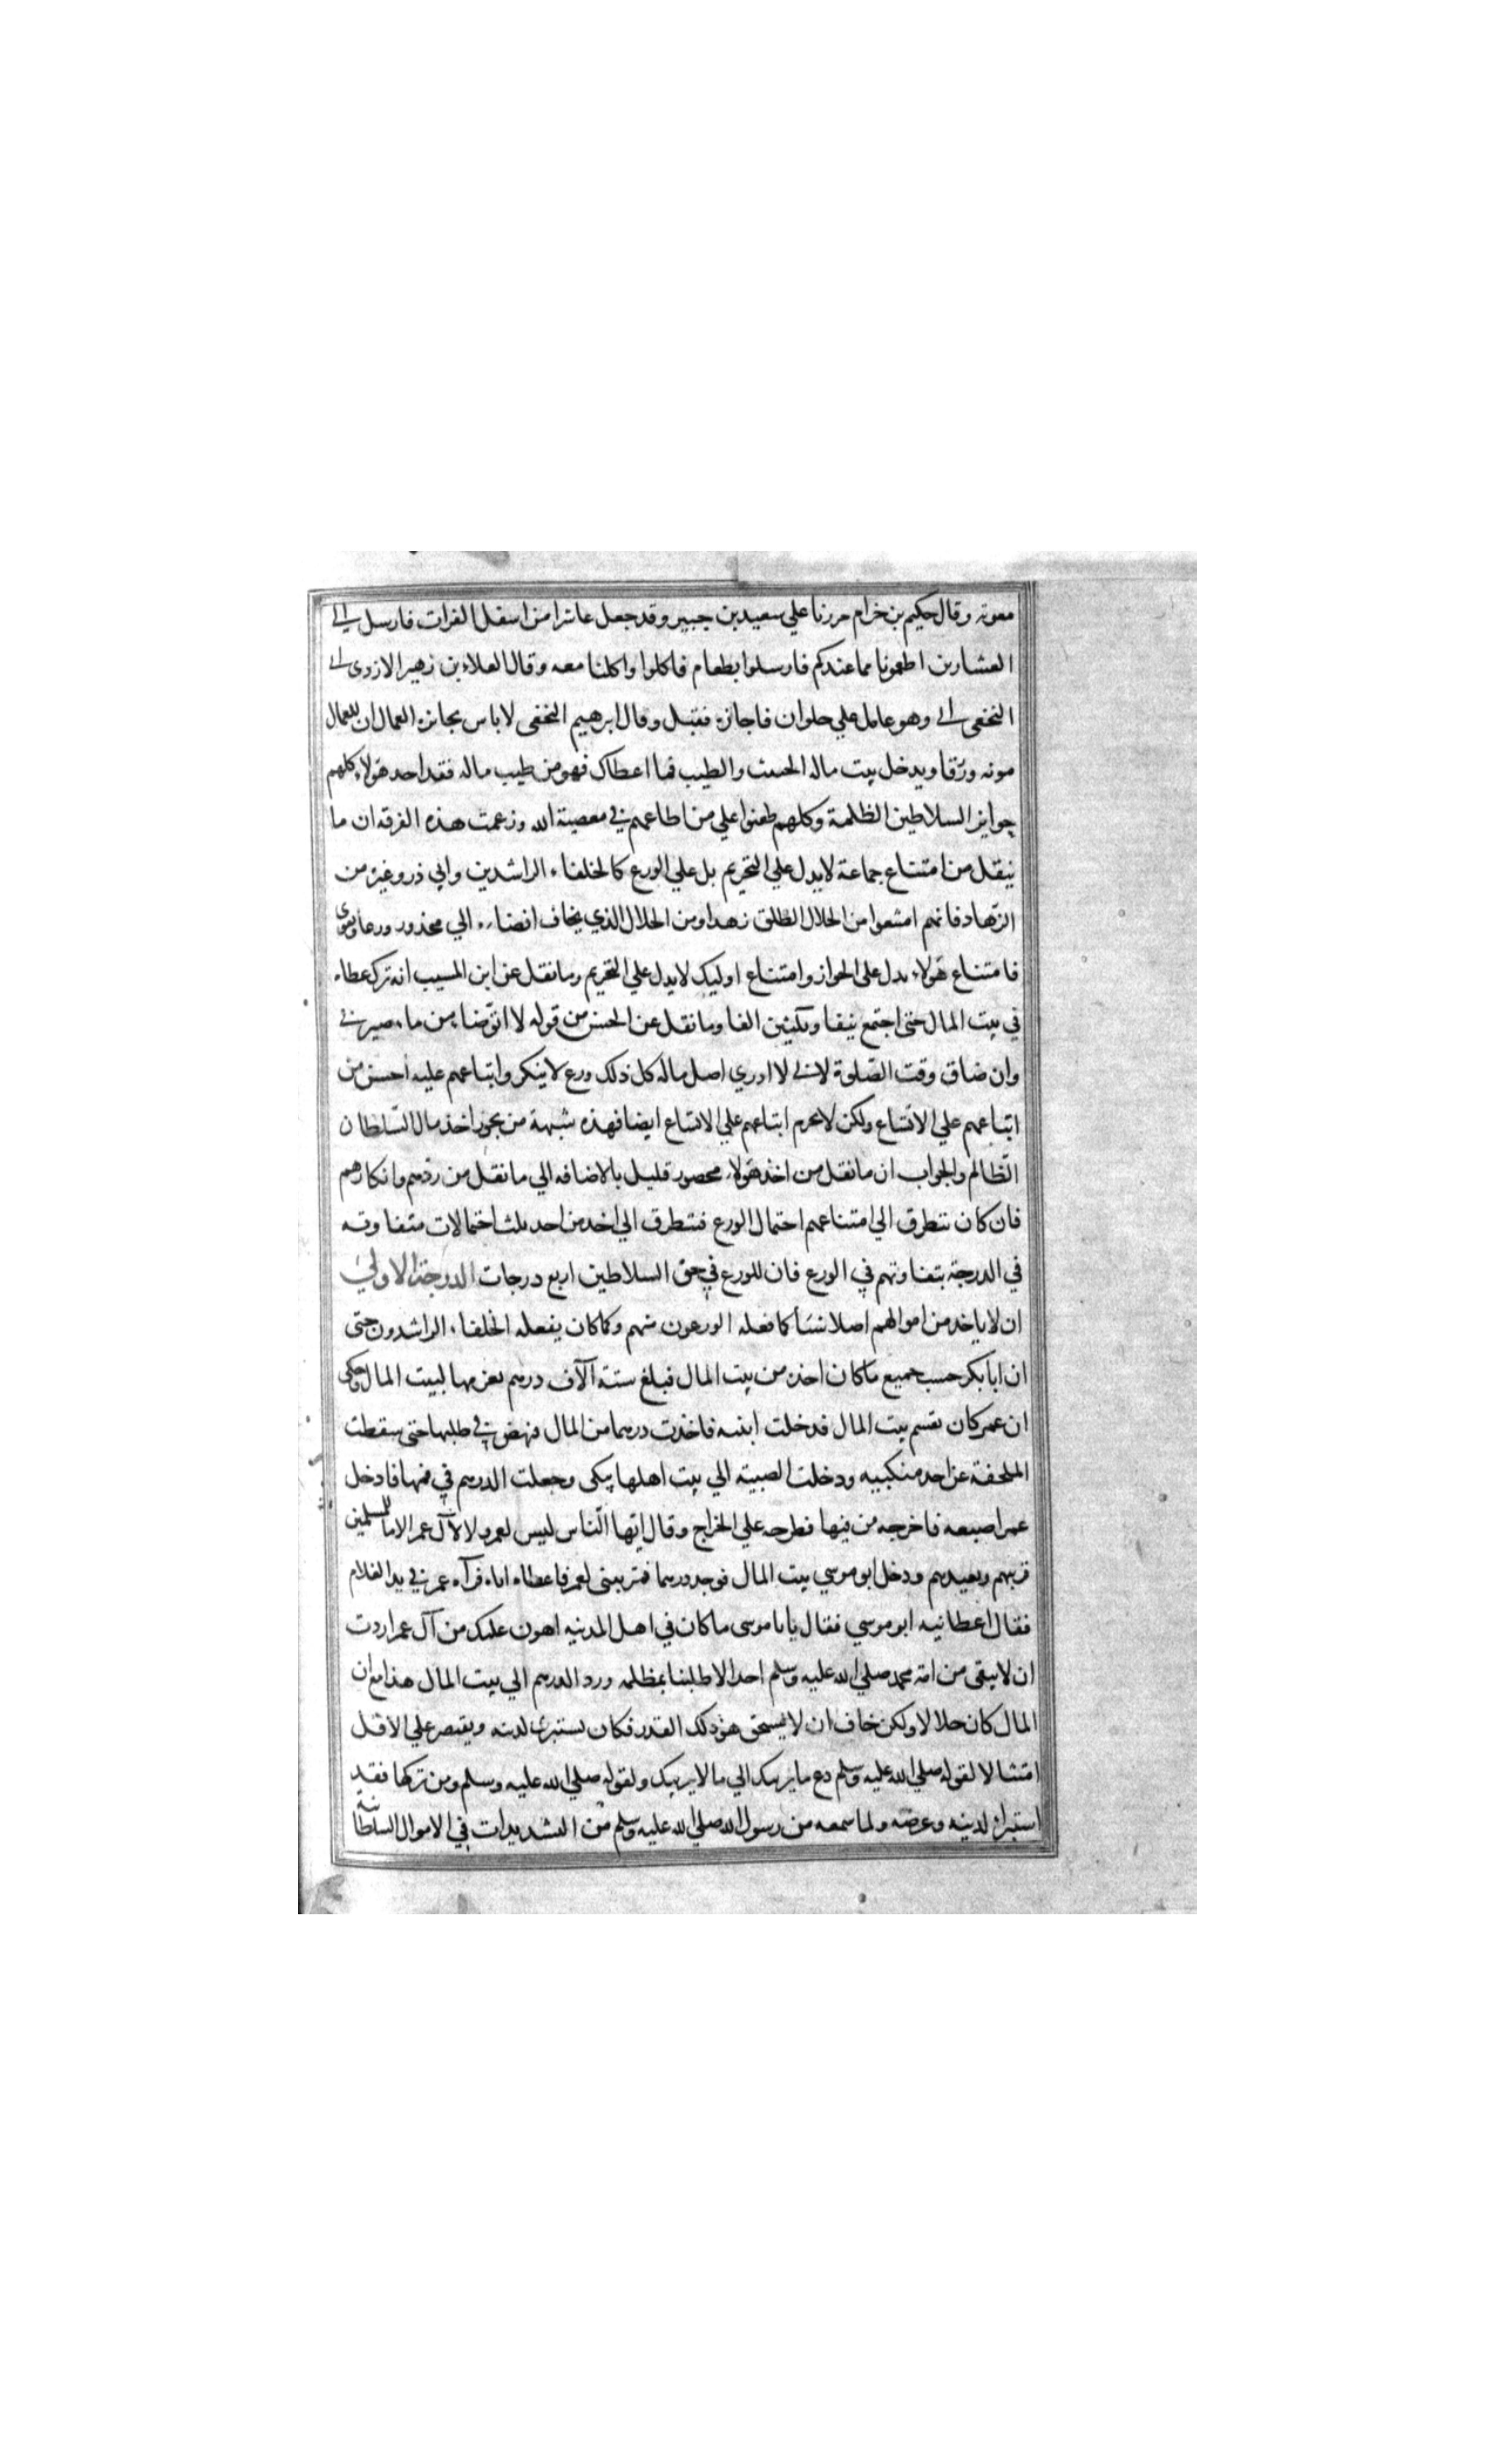 معونه وقال حكيم بن خرام مررنا علي سعيد بن جبير وقد جعل عاشرا من اسفل الفرات فارسل الي
العشارين اطعمونا مما عندكم فارسلوا بطعام فاكلوا واكلنا معه وقال العلاء بن زهير الازدى الى
النخعى الى وهو عامل علي حلوان فاجازه فقبل وقال ابرهيم النخعى لا باس بجائزه العمال ان للعمال
مونه ورزقا ويدخل بيت ماله الخبيث والطيب فما اعطاك فهو من طيب ماله فقد احد هولاء كلهم
جوايز السلاطين الظلمة وكلهم طعنوا علي من اطاعهم في معصية الله وزعمت هذه الفرقه ان ما
ينقل من امتناع جماعة لا يدل علي التحريم بل علي الورع كالخلفاء الراشدين وابي ذر وغيره من
الزهاد فانهم امتنعوا من الحلال الطلق زهدا ومن الحلال الذي يخاف افضاءه الي محذور ورعا وتقوى
فامتناع هولاء يدل على الجواز وامتناع اوليك لا يدل علي التحريم وما نقل عن ابن المسيب انه ترك عطاه
في بيت المال حتى اجتمع نيفا وثلثين الفا وما نقل عن الحسن من قوله لا اتوضاء من ماء صيرفي
وان ضاق وقت الصلوة لاني لا ادري اصل ماله كل ذلك ورع لا ينكر واتباعهم عليه احسن من
اتباعهم علي الاتساع ولكن لا يحرم اتباعهم علي الاتساع ايضا فهذه شبهة من يجوز اخذ مال السلطان
الظالم والجواب ان ما نقل من اخذ هولاء محصور قليل بالاضافه الي ما نقل من ردهم وانكارهم
فان كان يتطرق الي امتناعهم احتمال الورع فيتطرق الي اخذ من احد ثلث احتمالات متفاوته
في الدرجة بتفاوتهم في الورع فان للورع في حق السلاطين اربع درجات الدرجة الاولي
ان لا ياخذ من اموالهم اصلا شيأ كما فعله الورعون منهم وكما كان يفعله الخلفاء الراشدون حتى
ان ابا بكر حسب جميع ما كان اخذ من بيت المال فبلغ ستة آلاف درهم يغرمها لبيت المال وحكى
ان عمر كان يقسم بيت المال فدخلت ابنته فاخذت درهما من المال فنهض في طلبها حتى سقطت
الملحفة عن احد منكبيه ودخلت الصبية الي بيت اهلها تبكى وجعلت الدرهم في فمها فادخل
عمر اصبعه فاخرجه من فيها فطرحه علي الخراج وقال ايها الناس ليس لعمر ولا لآل عمر الا ما للمسلمين
قريبهم وبعيدهم ودخل ابو موسي بيت المال فوجد درهما فمر بنى لعمر فاعطاه اياه فرآه عمر في يد الغلام
فقال اعطانيه ابو موسي فقال يا با موسى ما كان في اهل المدنيه اهون عليك من آل عمر اردت
ان لا يبقى من امة محمد صلي الله عليه وسلم احد الا طلبنا بمظلمه ورد الدرهم الي بيت المال هذا مع ان
المال كان حلالا ولكن خاف ان لا يستحق هو ذلك القدر فكان يستبرى لدينه ويقتصر علي الاقل
امتثالا لقوله صلي الله عليه وسلم دع ما يريبك الي ما لا يريبك ولقوله صلي الله عليه وسلم ومن تركها فقد
استبراء لدينه وعرضه ولما سمعه من رسول الله صلي الله عليه وسلم من التشديدات في الاموال السلطانية